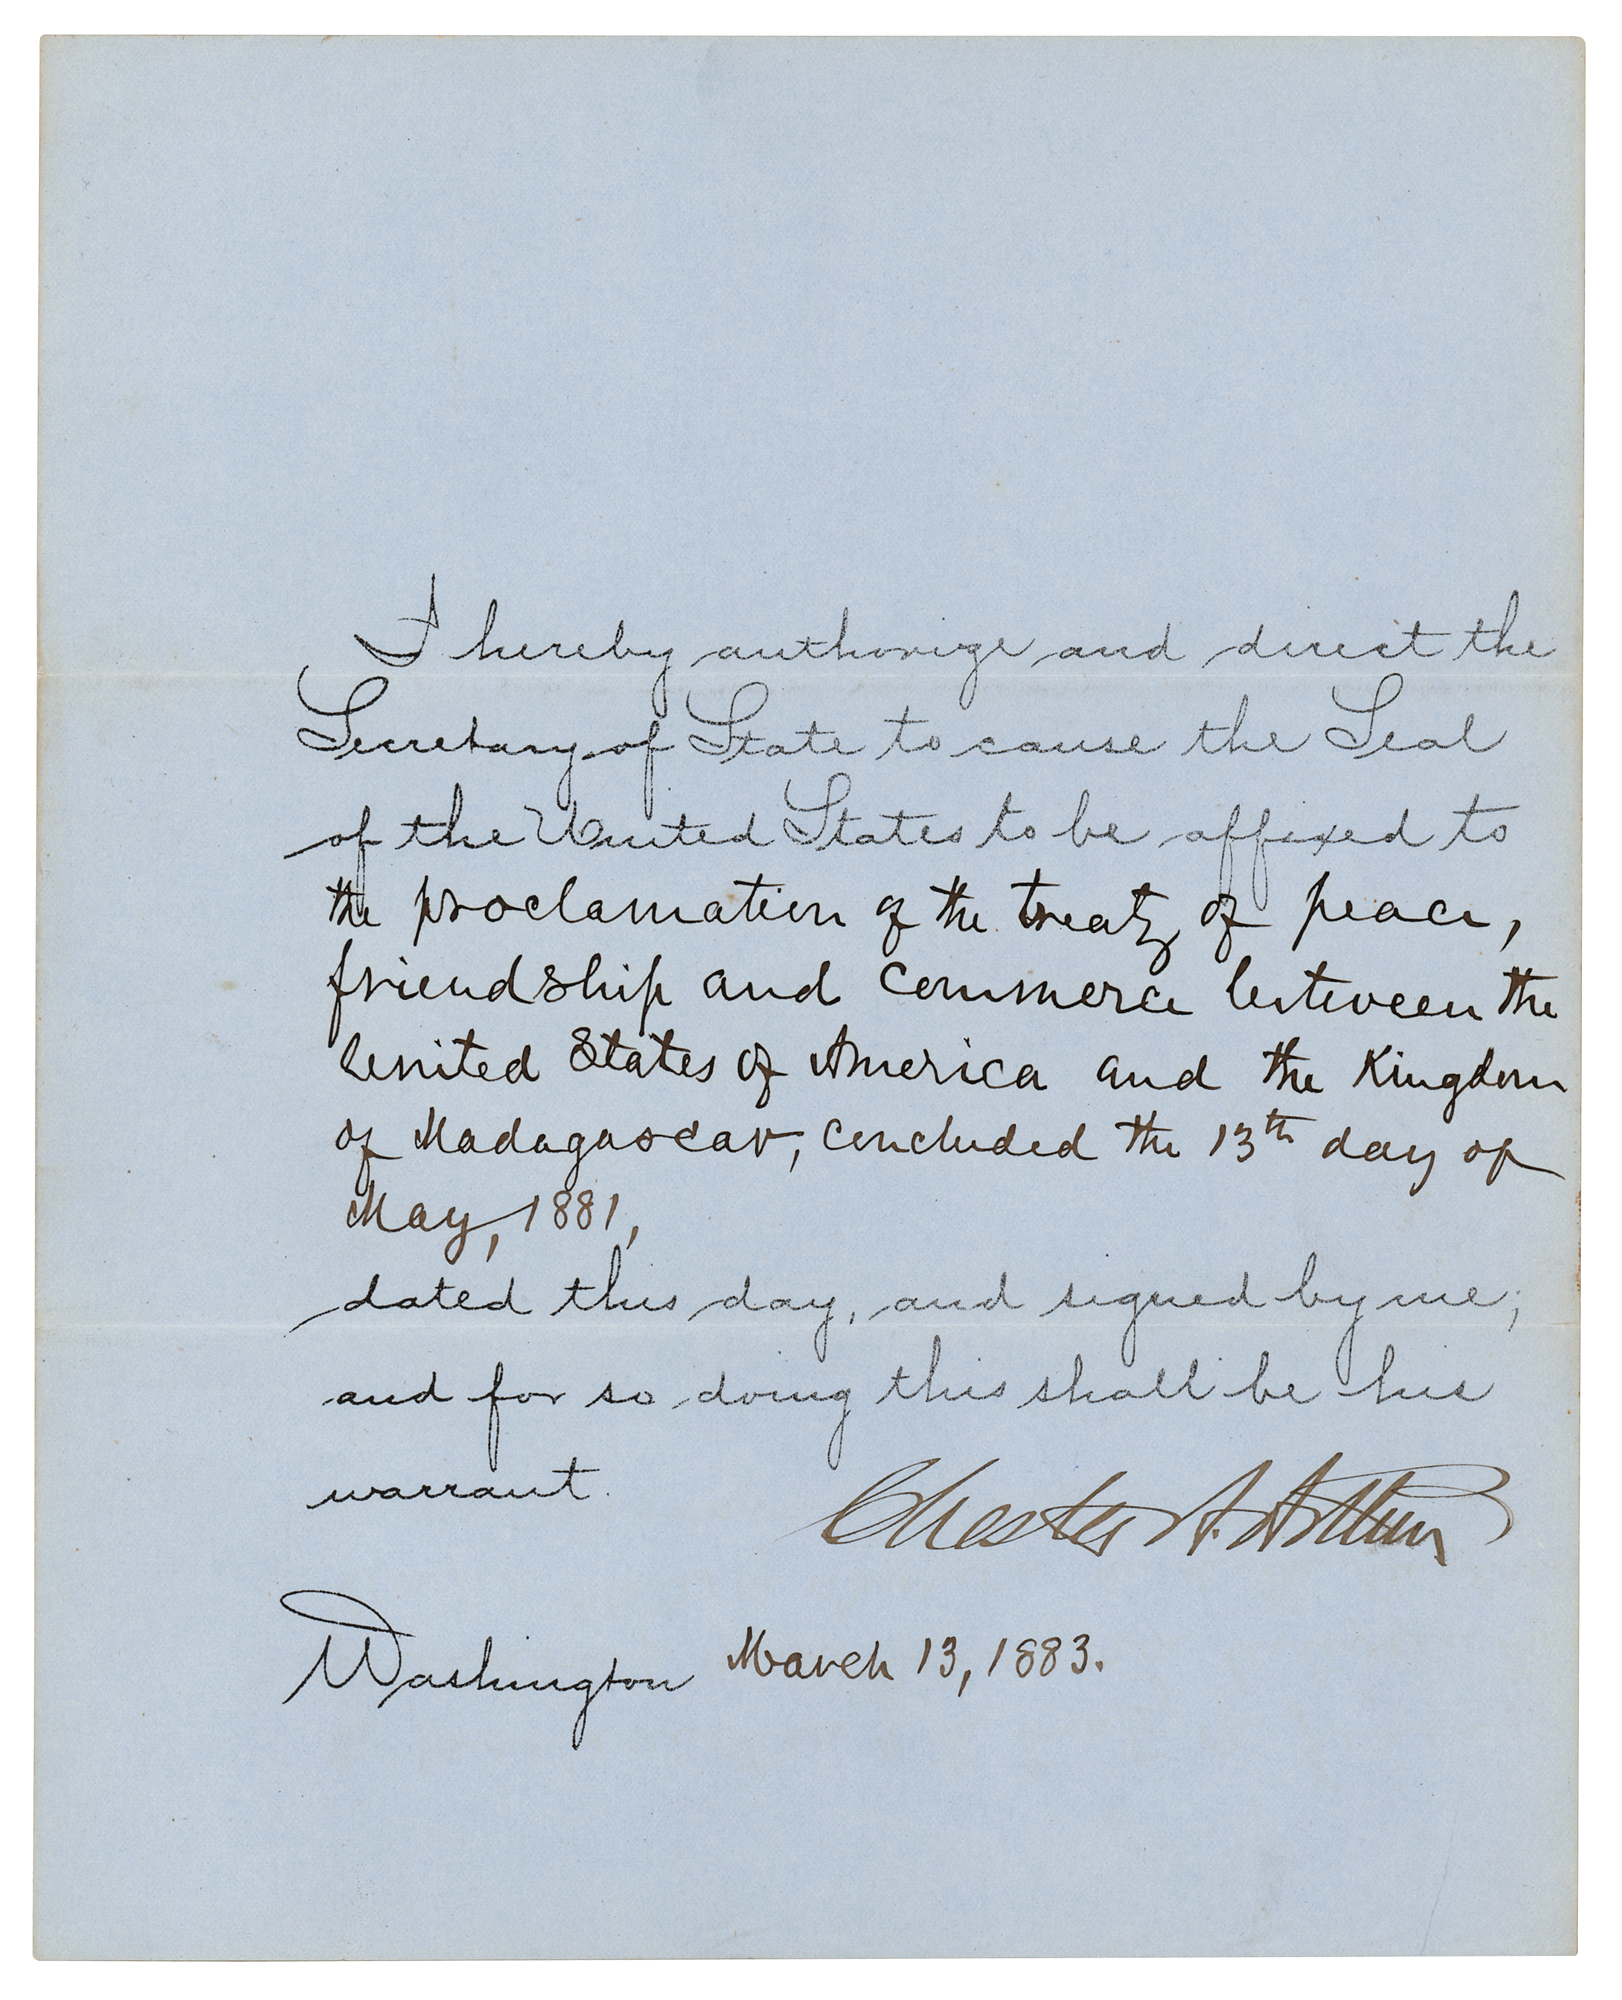 I hereby authorize and direct the
Secretary of State to cause the Seal
of the United States to be affixed to
the proclamation of the treaty of peace,
friendship and commerce between the
United States of America and the Kingdom
of Madagascar, concluded the 13th day of
May, 1881,
dated this day, and signed by me;
and for so doing this shall be his
warrant.
Chester A. Arthur
Washington March 13, 1883.